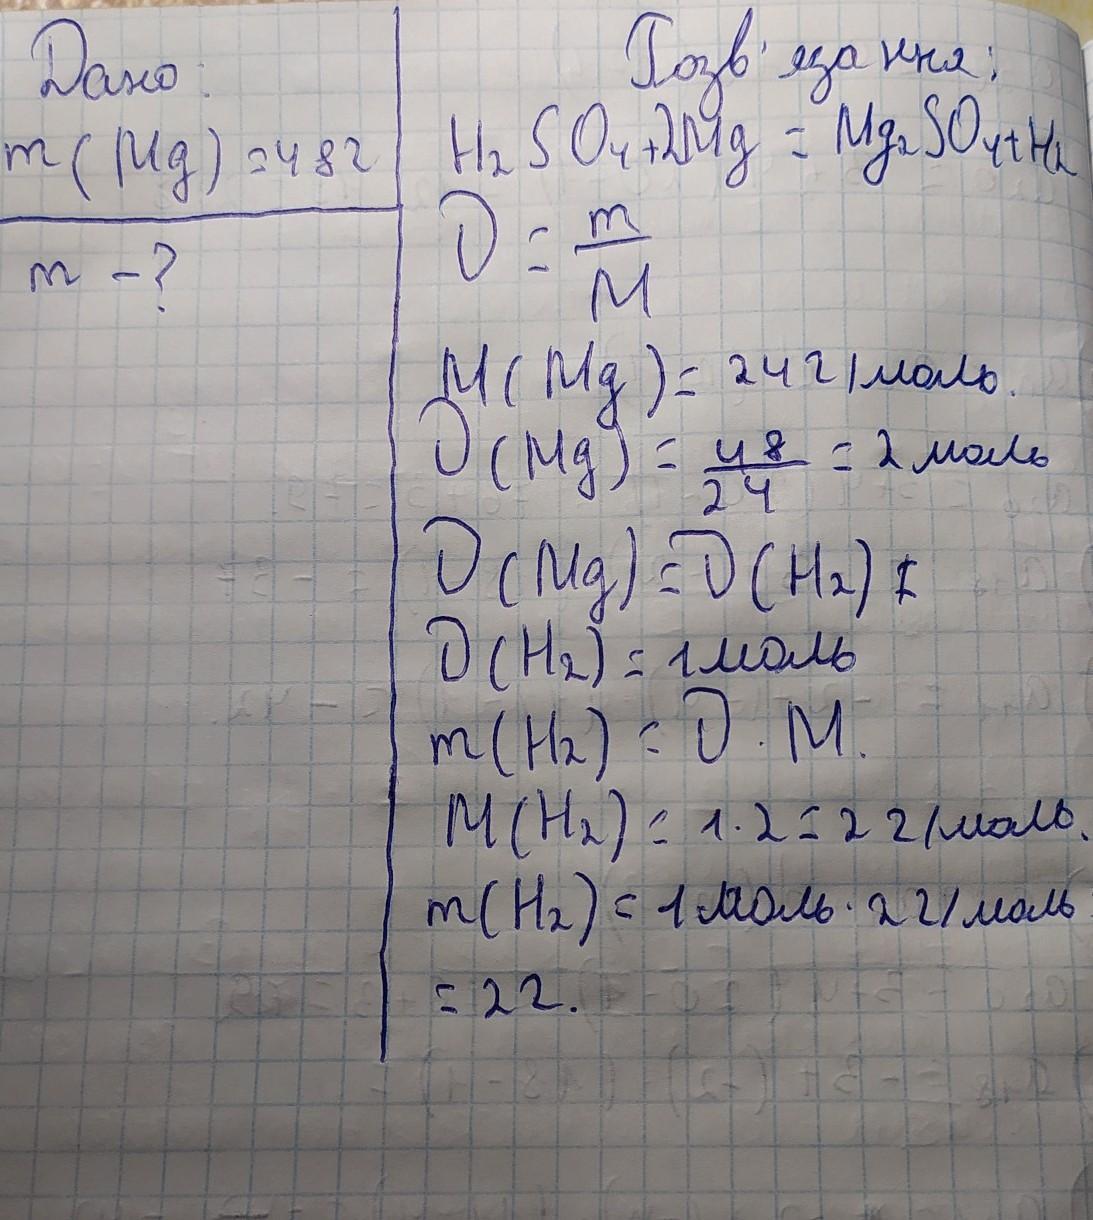 Дано:
m(Mg)=48г
m -?
Розв'язання:
H₂SO₄+2Mg = Mg₂SO₄+H₂
ν = m/M
M(Mg)= 24 г/моль.
ν(Mg)= 48/24 = 2 моль
ν(Mg)=ν(H₂)
ν(H₂)= 1 моль
m(H₂)= ν · M.
M(H₂)= 1·2=2 г/моль.
m(H₂)= 1 моль · 2 г/моль
= 2г.